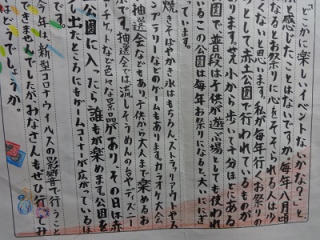 「どこかに楽しいイベントないかな?」と
と感じたことはないですか。毎年八月頃
なるとお祭りに心をそそられる人は少
くないと思います。私が毎年行くお祭りの
として赤丘公園で行われているものが
ります。せえ小から歩いて十分ほどにある
園で普段は子供が遊び場としても使われ
いるこの公園は毎年お祭りになると、大いににぎ
ています。
焼きそばやかき氷はもちろん、ストラックアウトやス
ンボラリーなどのゲームもあります。カラオケ大会
抽選会などもあり子供から大人まで楽めるお
です。抽選会では流しそうめんの台やディズニー
チケットなど色々な景品があり、その日は赤
公園に入たら誰もが楽めます。公園を
し出たところにもゲームコーナーが広がっているほ
です。
今年は、新型コロナウイルスの影響で行うこと
きませんでしたが、みなさんもぜひ行
はどうでしょうか。